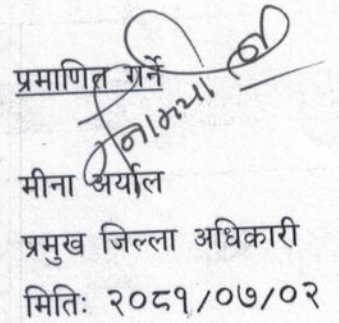 प्रमाणित गर्ने
मीना अर्याल
प्रमुख जिल्ला अधिकारी
मितिः २०८१/०७/०२